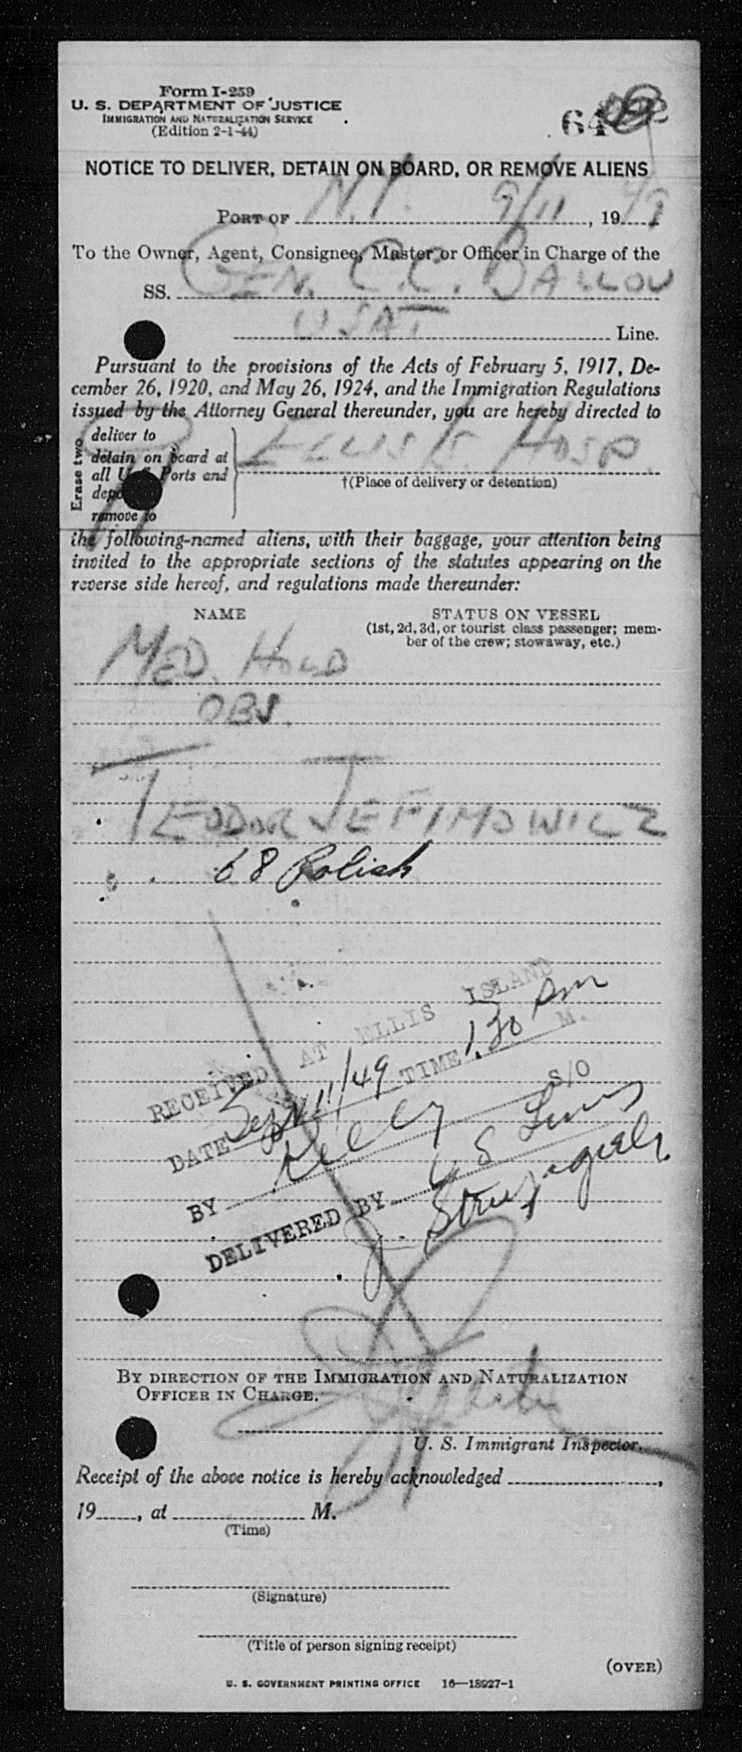 Form I-259
U. S. DEPARTMENT OF JUSTICE
IMMIGRATION AND NATURALIZATION SERVICE
(Edition 2-1-44)
64
NOTICE TO DELIVER, DETAIN ON BOARD, OR REMOVE ALIENS
PORT OF N.Y. 9/11, 1949
To the Owner, Agent, Consignee, Master or Officer in Charge of the
SS. GEN. C.C. BALLOU
USAT Line.
Pursuant to the provisions of the Acts of February 5, 1917, De-
cember 26, 1920, and May 26, 1924, and the Immigration Regulations
issued by the Attorney General thereunder, you are hereby directed to
Erase two
deliver to
detain on board at
all U. S. Ports and
remove to
ELLIS IS. HOSP.
†(Place of delivery or detention)
the following-named aliens, with their baggage, your attention being
invited to the appropriate sections of the statutes appearing on the
reverse side hereof, and regulations made thereunder:
NAME
STATUS ON VESSEL
(1st, 2d, 3d, or tourist class passenger; mem-
ber of the crew; stowaway, etc.)
MED. HOLD
OBS.
TEODOR JEFIMOWICZ
68 Polish
RECEIVED AT ELLIS ISLAND
DATE Sept 11/49 TIME 1:30 pm M.
BY Kelly S/O
DELIVERED BY
BY DIRECTION OF THE IMMIGRATION AND NATURALIZATION
OFFICER IN CHARGE.
U. S. Immigrant Inspector.
Receipt of the above notice is hereby acknowledged ,
19 , at M.
(Time)
(Signature)
(Title of person signing receipt)
(OVER)
U. S. GOVERNMENT PRINTING OFFICE 16—18927-1